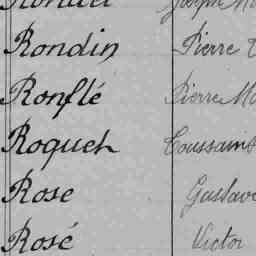 Rondin Pierre
Ronflé Pierre
Roquet Toussaint
Rose Gustave
Rosé Victor